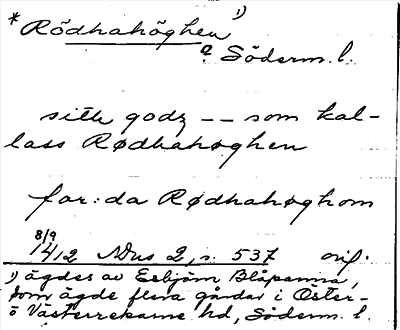 * Rödhahöghen 1)
? Söderm. l.
sith godz -- som kal-
lass Rødhahøghen
for:da Rødhahøghom
8/9
1412 NDus 2, s. 537 orig.
1) ägdes av Esbjörn Blåpanna,
som ägde flera gårdar i Öster-
o Västerrekarne hd, Söderm. l.